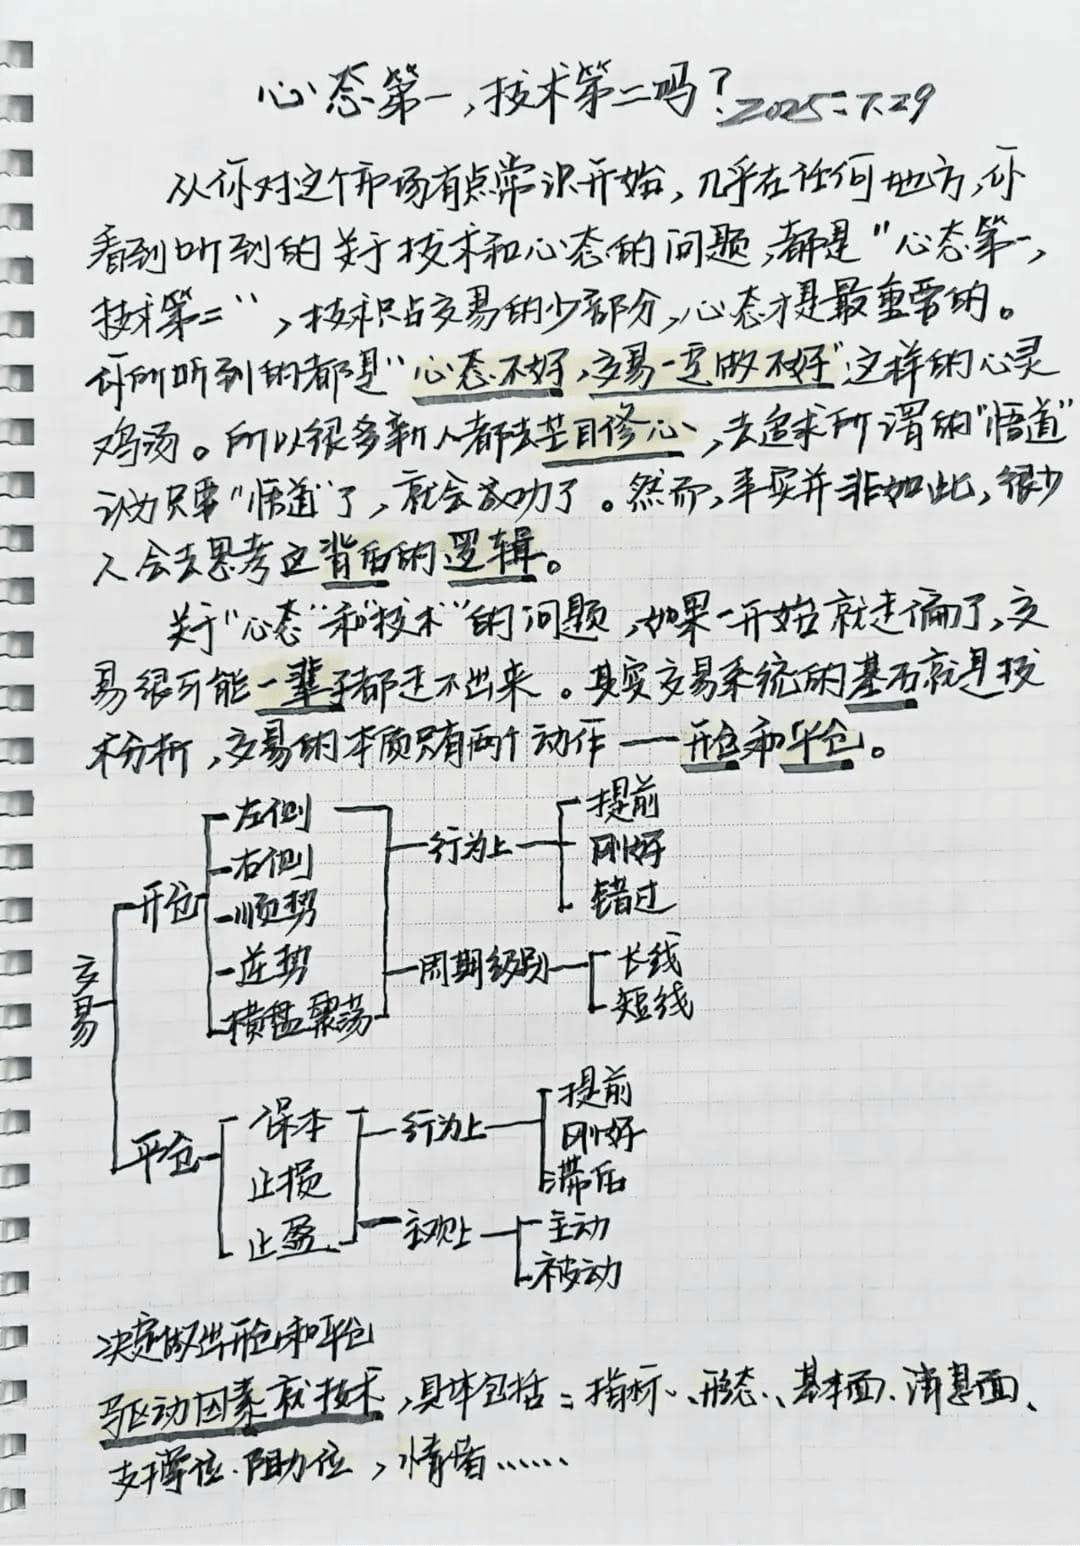 心态第一,技术第二吗? 2025.7.29
从你对这个市场有点常识开始,几乎在任何地方,你
看到听到的关于技术和心态的问题,都是"心态第一,
技术第二",技术只占交易的少部分,心态才是最重要的。
你所听到的都是"心态不好,交易一定做不好"这样的心灵
鸡汤。所以很多新人都去盲目修心,去追求所谓的"悟道"
认为只要"悟道"了,就会成功了。然而,事实并非如此,很少
人会去思考这背后的逻辑。
关于"心态"和"技术"的问题,如果一开始就走偏了,交
易很可能一辈子都走不出来。其实交易系统的基石就是技
术分析,交易的本质只有两个动作——开仓和平仓。
交易
开仓
左侧
右侧
顺势
逆势
横盘震荡
行为上
提前
刚好
错过
周期级别
长线
短线
平仓
保本
止损
止盈
行为上
提前
刚好
滞后
主观上
主动
被动
决定做出开仓和平仓
驱动因素就技术,具体包括:指标、形态、基本面、消息面、
支撑位、阻力位,情绪……